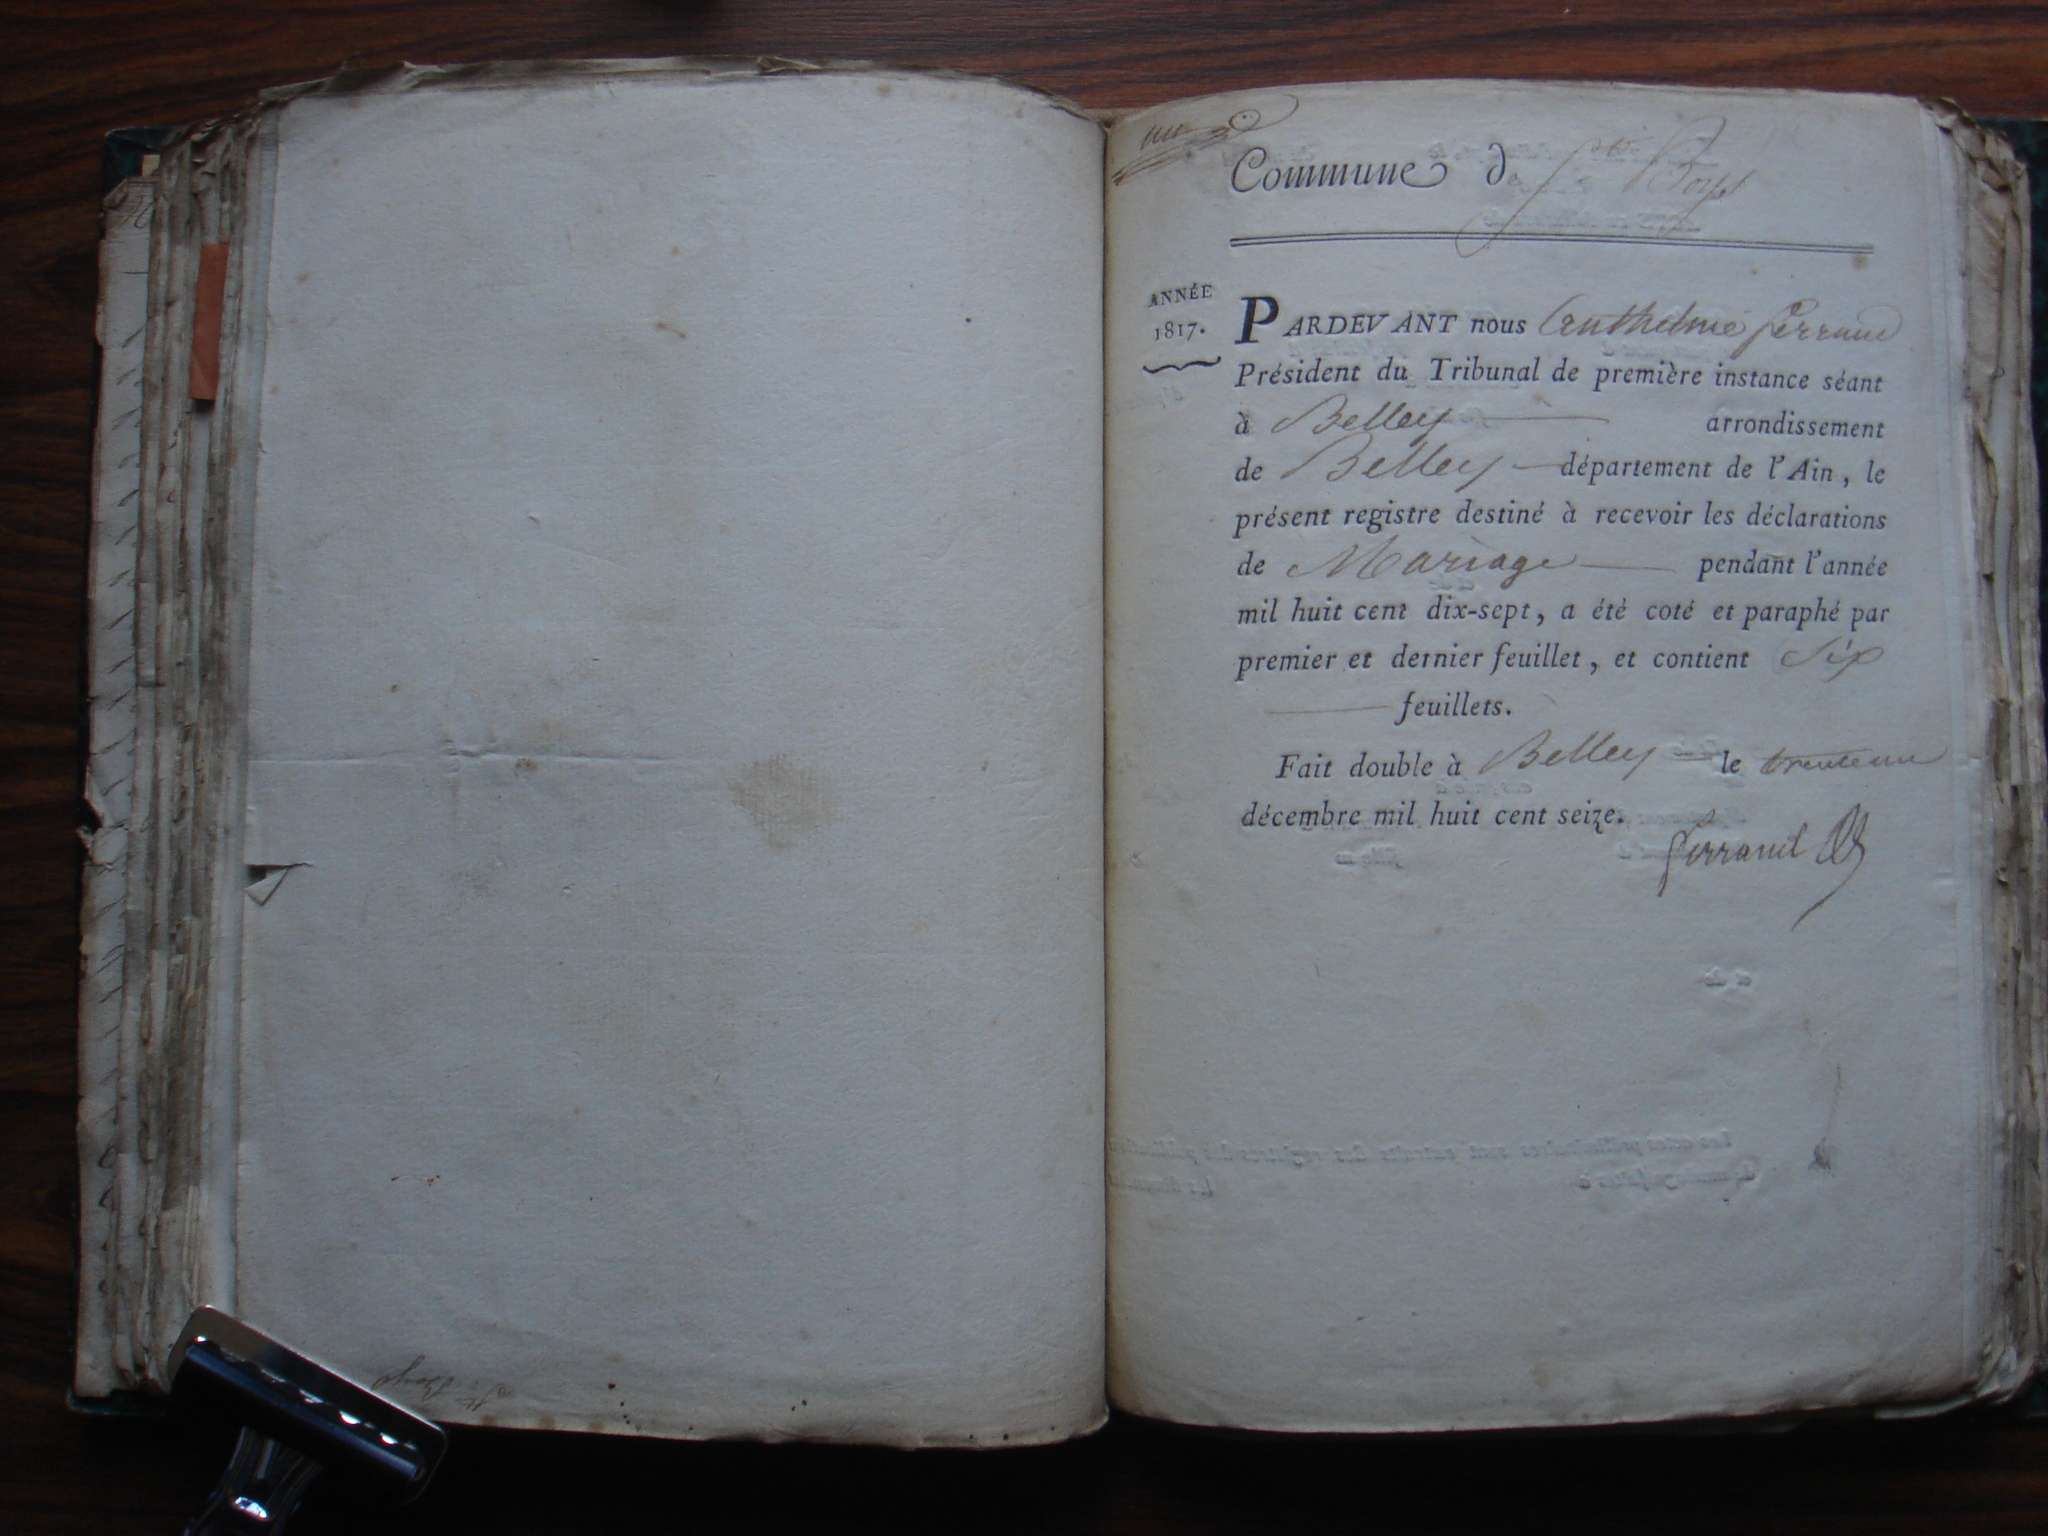 un
Commune de
ANNÉE
1817.
PARDEVANT nous Anthelme Ferrand
Président du Tribunal de première instance séant
à Belley arrondissement
de Belley département de l'Ain, le
présent registre destiné à recevoir les déclarations
de Mariage pendant l'année
mil huit cent dix-sept, a été coté et paraphé par
premier et dernier feuillet, et contient Six
feuillets.
Fait double à Belley le trente un
décembre mil huit cent seize.
Ferrand